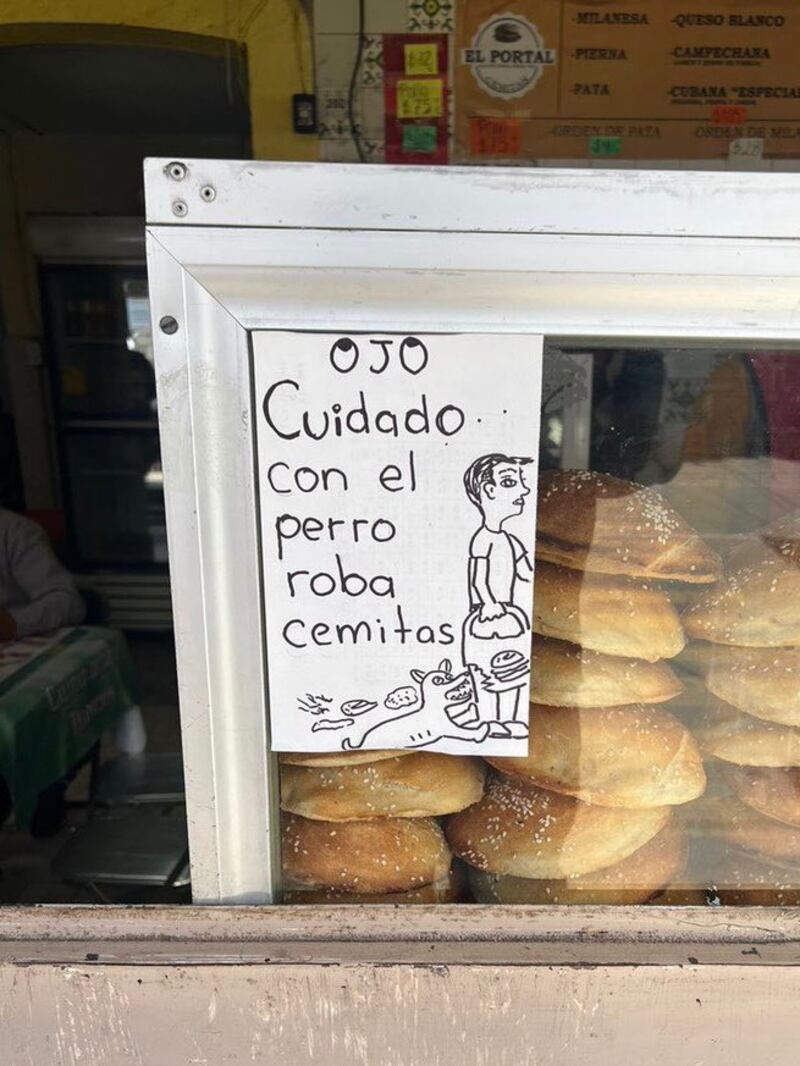 EL PORTAL
CEMITAS
-MILANESA
-PIERNA
-PATA
-QUESO BLANCO
-CAMPECHANA
-CUBANA "ESPECIA
-ORDEN DE PATA
-ORDEN DE MILA
OJO
Cuidado
con el
perro
roba
cemitas